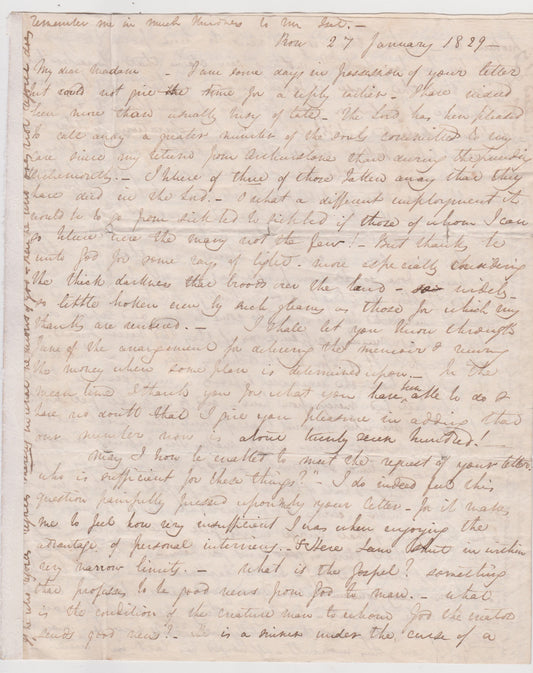 remember me in much kindness to Mr
Bow 27 January 1829 –
My dear Madam – I am some days in possession of your letter
but could not give the time for a reply earlier – I have indeed
been more than usually busy of late – The Lord has been pleased
to call away a greater number of the souls committed to my
care since my return from than during the preceding
– I hope of three of those taken away that they
have died in the Lord. – O what a different employment it
would be to go from sick bed to sick bed if those of whom I can
so were the many not the few! – But thanks be
unto God for some rays of light – more especially considering
the thick darkness that broods over the land – so widely –
so little broken even by such gleams as those for which my
thanks are rendered. – I shall let you know through
Jane of the arrangement for delivering the memoir &
the money when some plan is determined upon – In the
mean time I thank you for what you have been able to do &
have no doubt that I give you pleasure in adding that
our number now is above twenty seven hundred! –
May I now be enabled to meet the request of your letter
who is sufficient for these things?" I do indeed feel this
question painfully pressed upon me by your letter – for it makes
me to feel how very insufficient I was when enjoying the
advantage of personal interviews. – & Here I am shut in within
very narrow limits. – What is the Gospel? something
that professes to be good news from God to man. – What
is the condition of the creature man to whom God the
sends good news? – He is a sinner under the curse of a